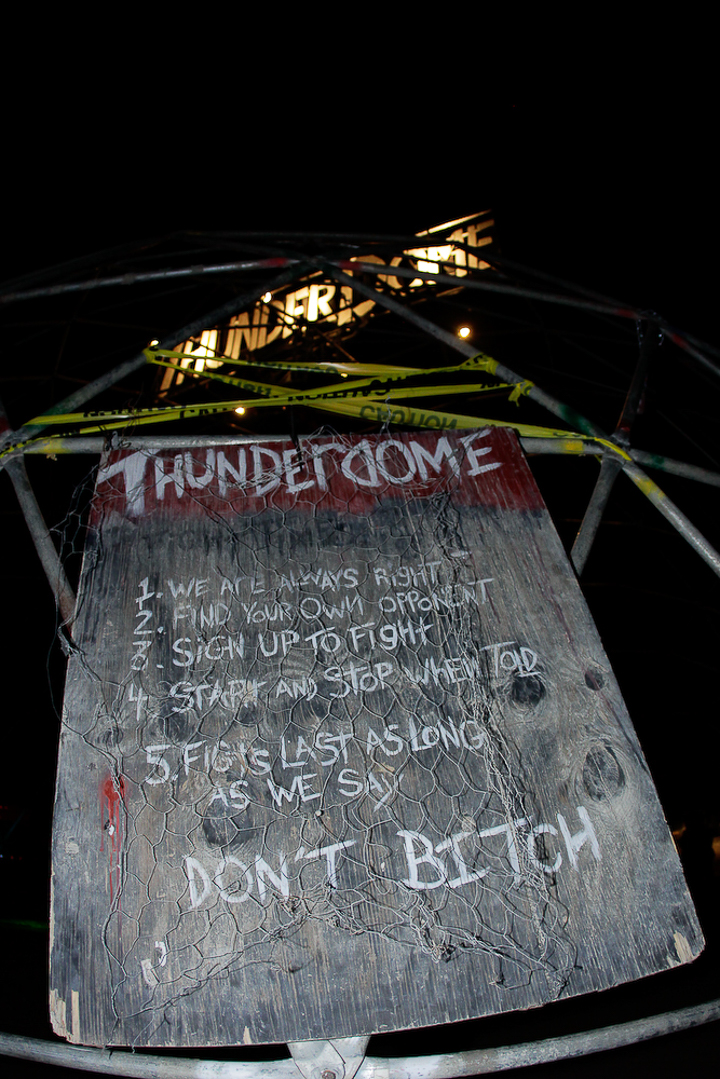 THUNDERDOME
CAUTION
THUNDERDOME
1. WE ARE ALWAYS RIGHT
2. FIND YOUR OWN OPPONENT
3. SIGN UP TO FIGHT
4. START AND STOP WHEN TOLD
5. FIGHTS LAST AS LONG
AS WE SAY
DON'T BITCH